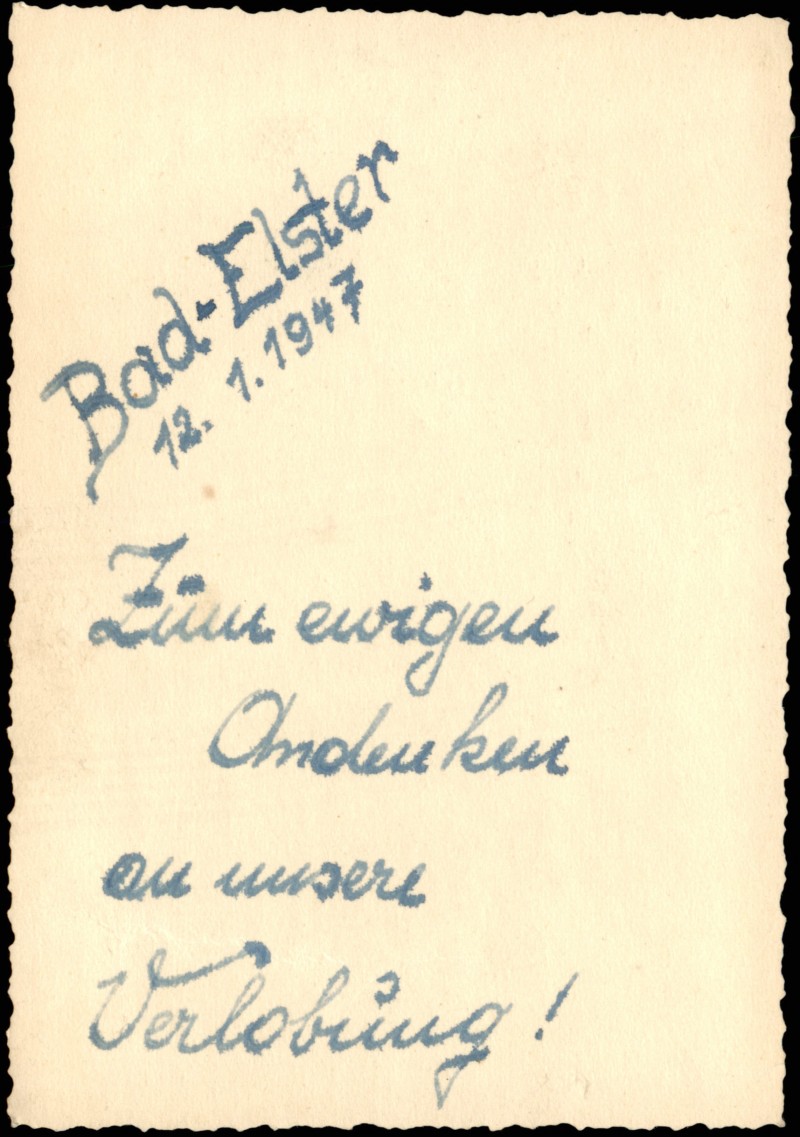 Bad-Elster
12. 1. 1947
Zum ewigen
Andenken
an unsere
Verlobung!